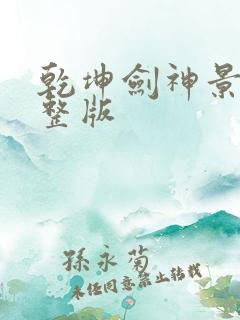 乾坤劍神景
整版
孫永菊
未经同意禁止转载